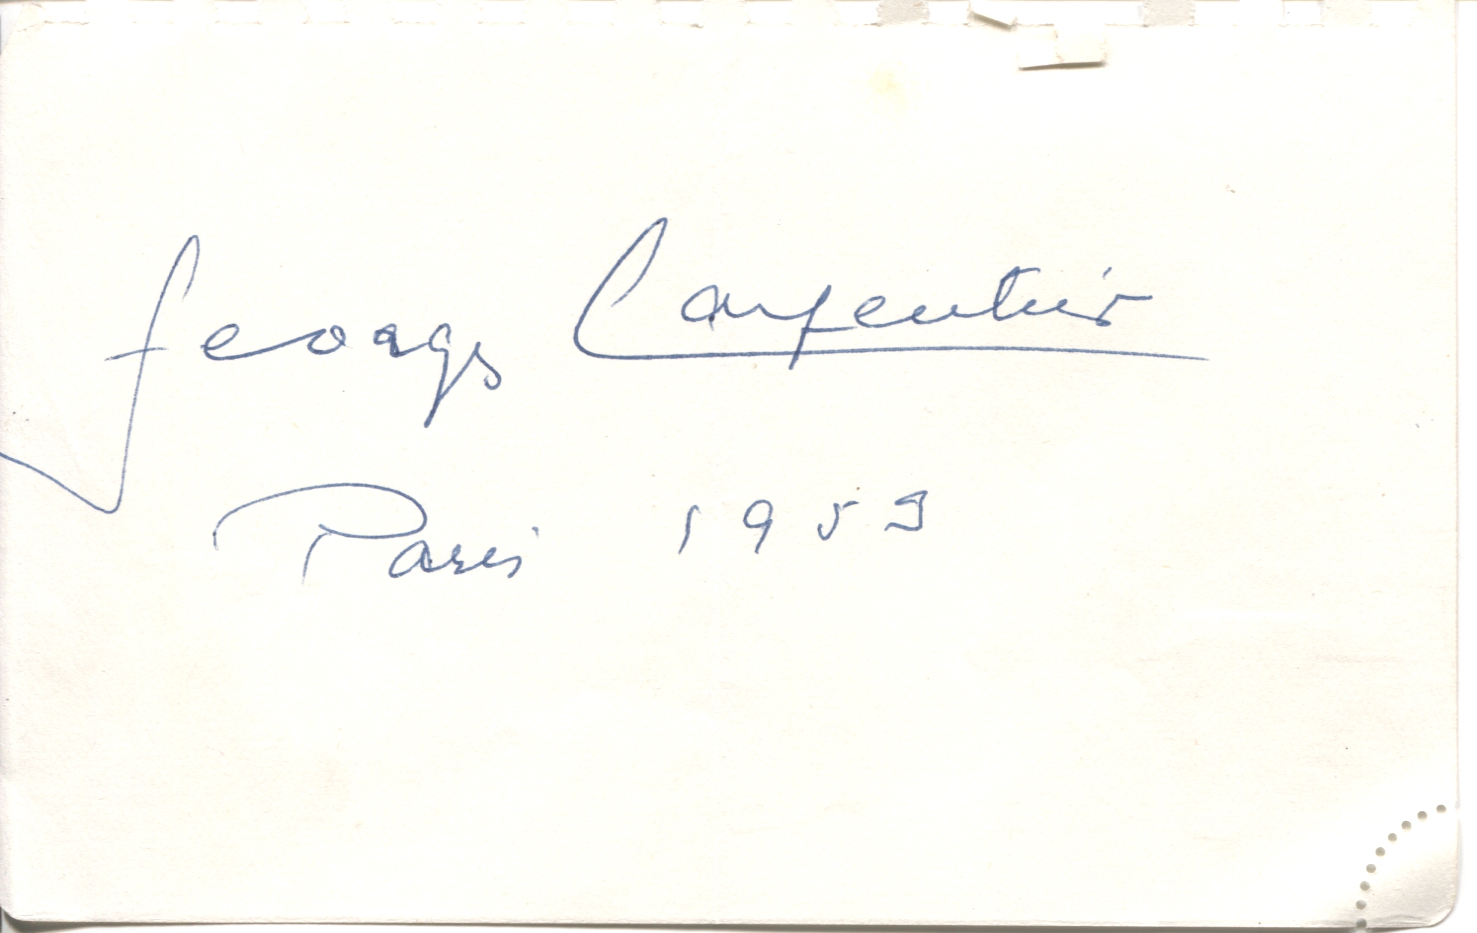 Georges Carpentier
Paris 1953